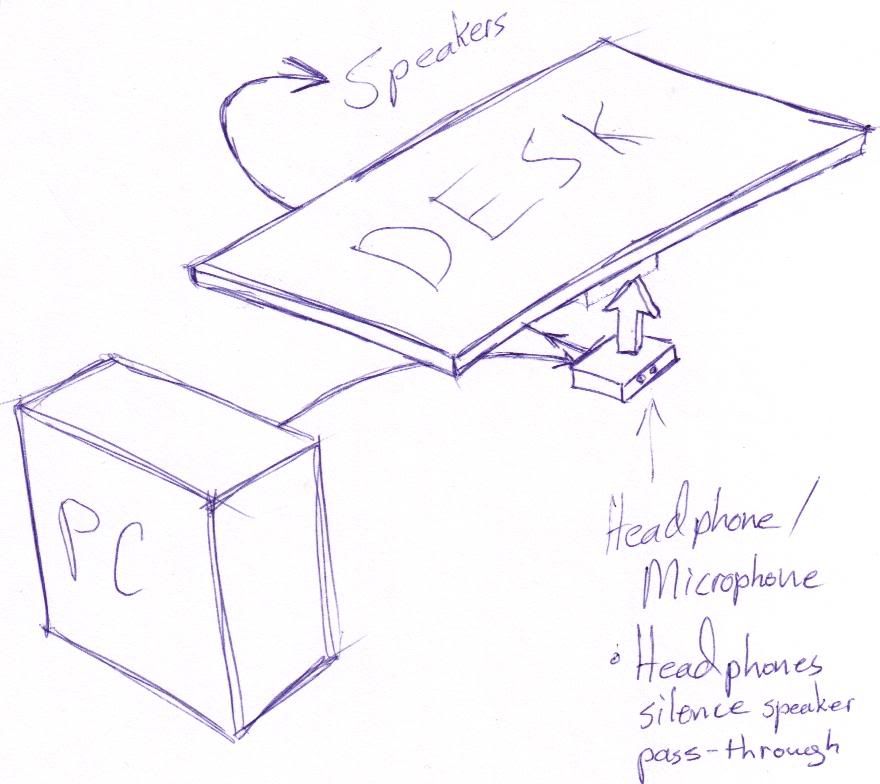 Speakers
DESK
PC
Headphone /
Microphone
• Headphones
silence speaker
pass-through